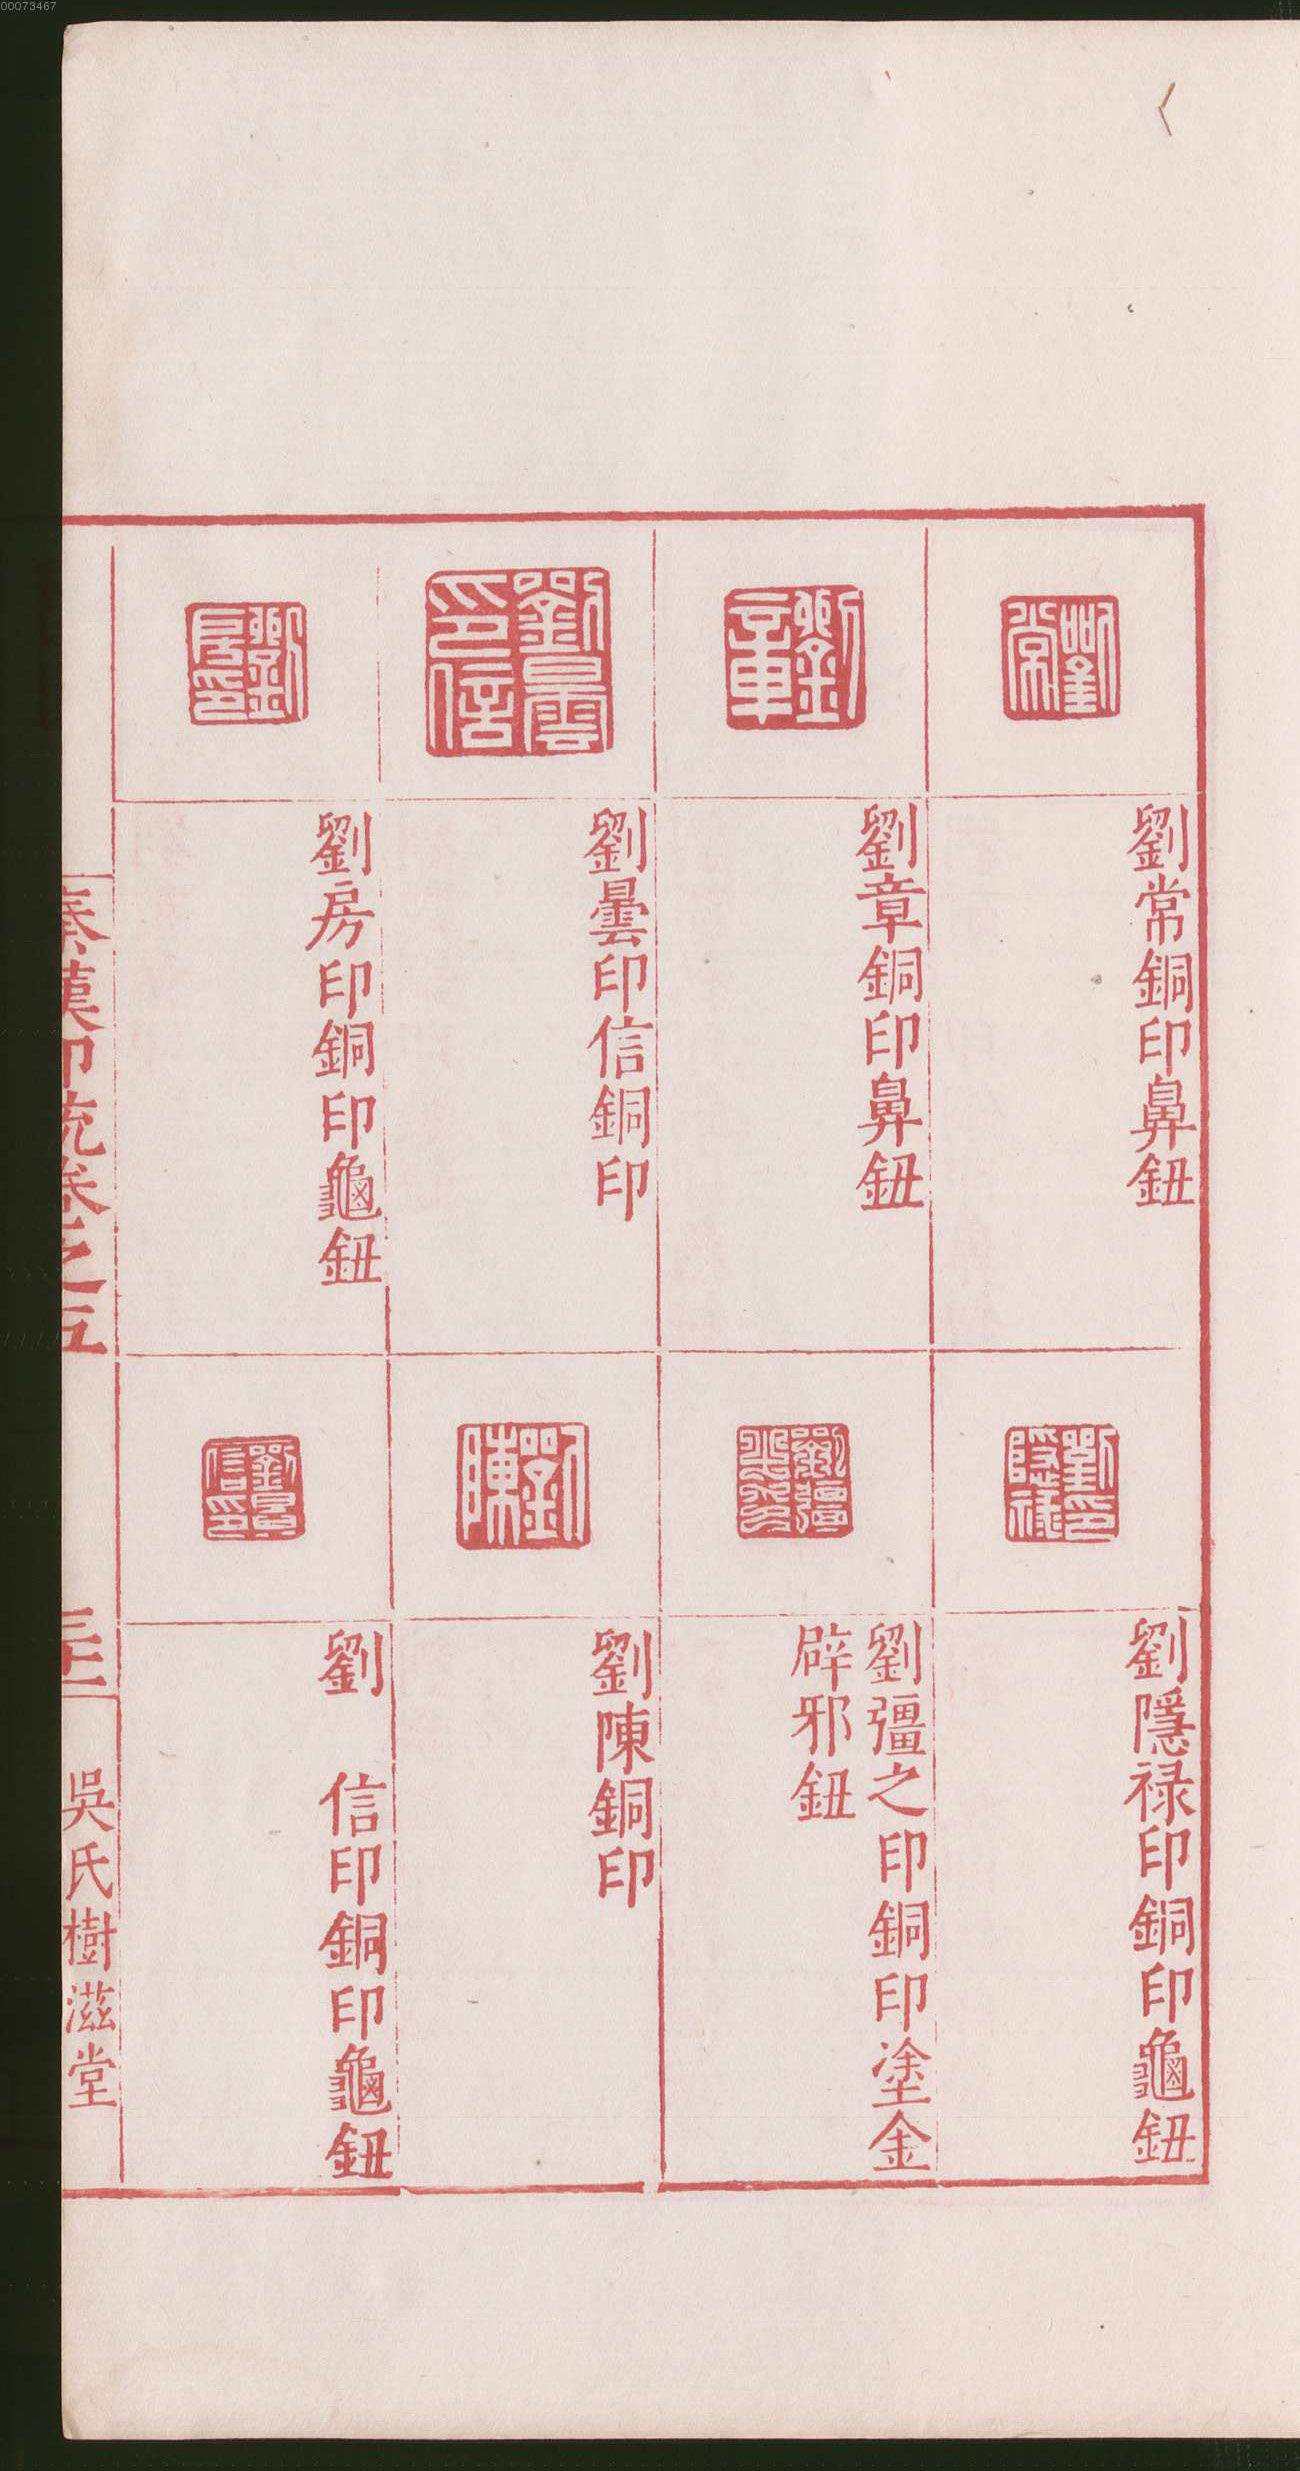 00073467
劉常
劉常銅印鼻鈕
劉章
劉章銅印鼻鈕
劉曇印信
劉曇印信銅印
劉房印
劉房印銅印龜鈕
劉印隱祿
劉隱祿印銅印龜鈕
劉彊之印
劉彊之印銅印塗金
辟邪鈕
劉陳
劉陳銅印
劉 信印
劉　信印銅印龜鈕
秦漢印統卷之五
吳氏樹滋堂